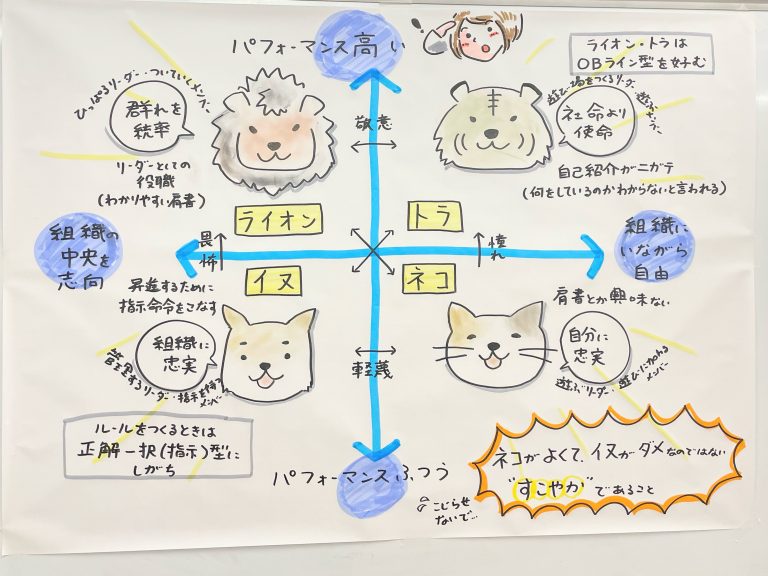 パフォーマンス高い
ライオン・トラは
OBライン型を好む
ひっぱるリーダー・ついていくメンバー
群れを
統率
リーダーとしての
役職
(わかりやすい肩書)
敬意
遊び場をつくるリーダー・遊ぶメンバー
社命より
使命
自己紹介がニガテ
(何をしているのかわからないと言われる)
ライオン
トラ
組織の
中央を
志向
畏怖
憧れ
組織に
いながら
自由
イヌ
ネコ
昇進するために
指示命令をこなす
組織に
忠実
管理するリーダー・指示を待つメンバー
軽蔑
肩書とか興味ない
自分に
忠実
遊ぶリーダー・遊びにかかわるメンバー
ルールをつくるときは
正解一択(指示)型に
しがち
パフォーマンスふつう
こじらせ
ないで…
ネコがよくて、イヌがダメなのではない
"すこやか"であること